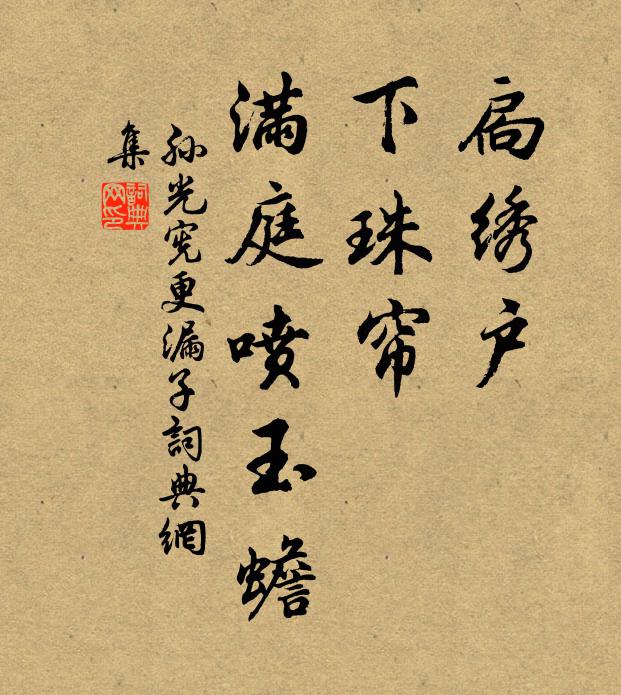 扃绣户
下珠帘
满庭喷玉蟾
孙光宪更漏子詞典網
集
詞典网印